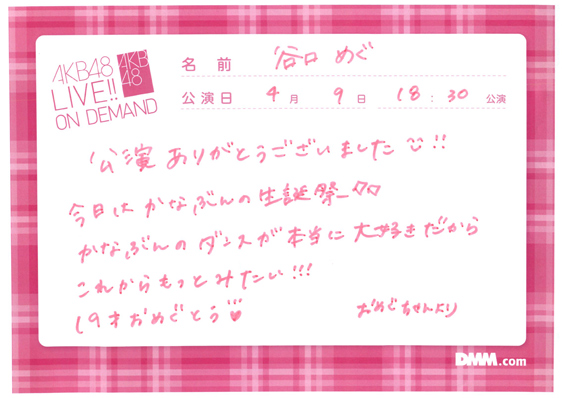 AKB48
LIVE!!
ON DEMAND
AKB
48
名前 谷口 めぐ
公演日 4月 9日 18:30 公演
公演ありがとうございました!!
今日は かなぶんの生誕祭
かなぶんのダンスが本当に大好きだから
これからもっとみたい!!!
19才おめぐとう
おめぐちゃんより
DMM.com